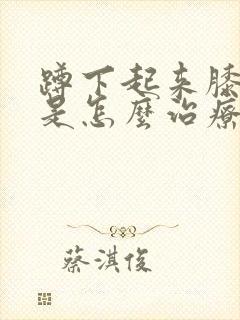 蹲下起来膝
是怎麼治療
蔡淇俊